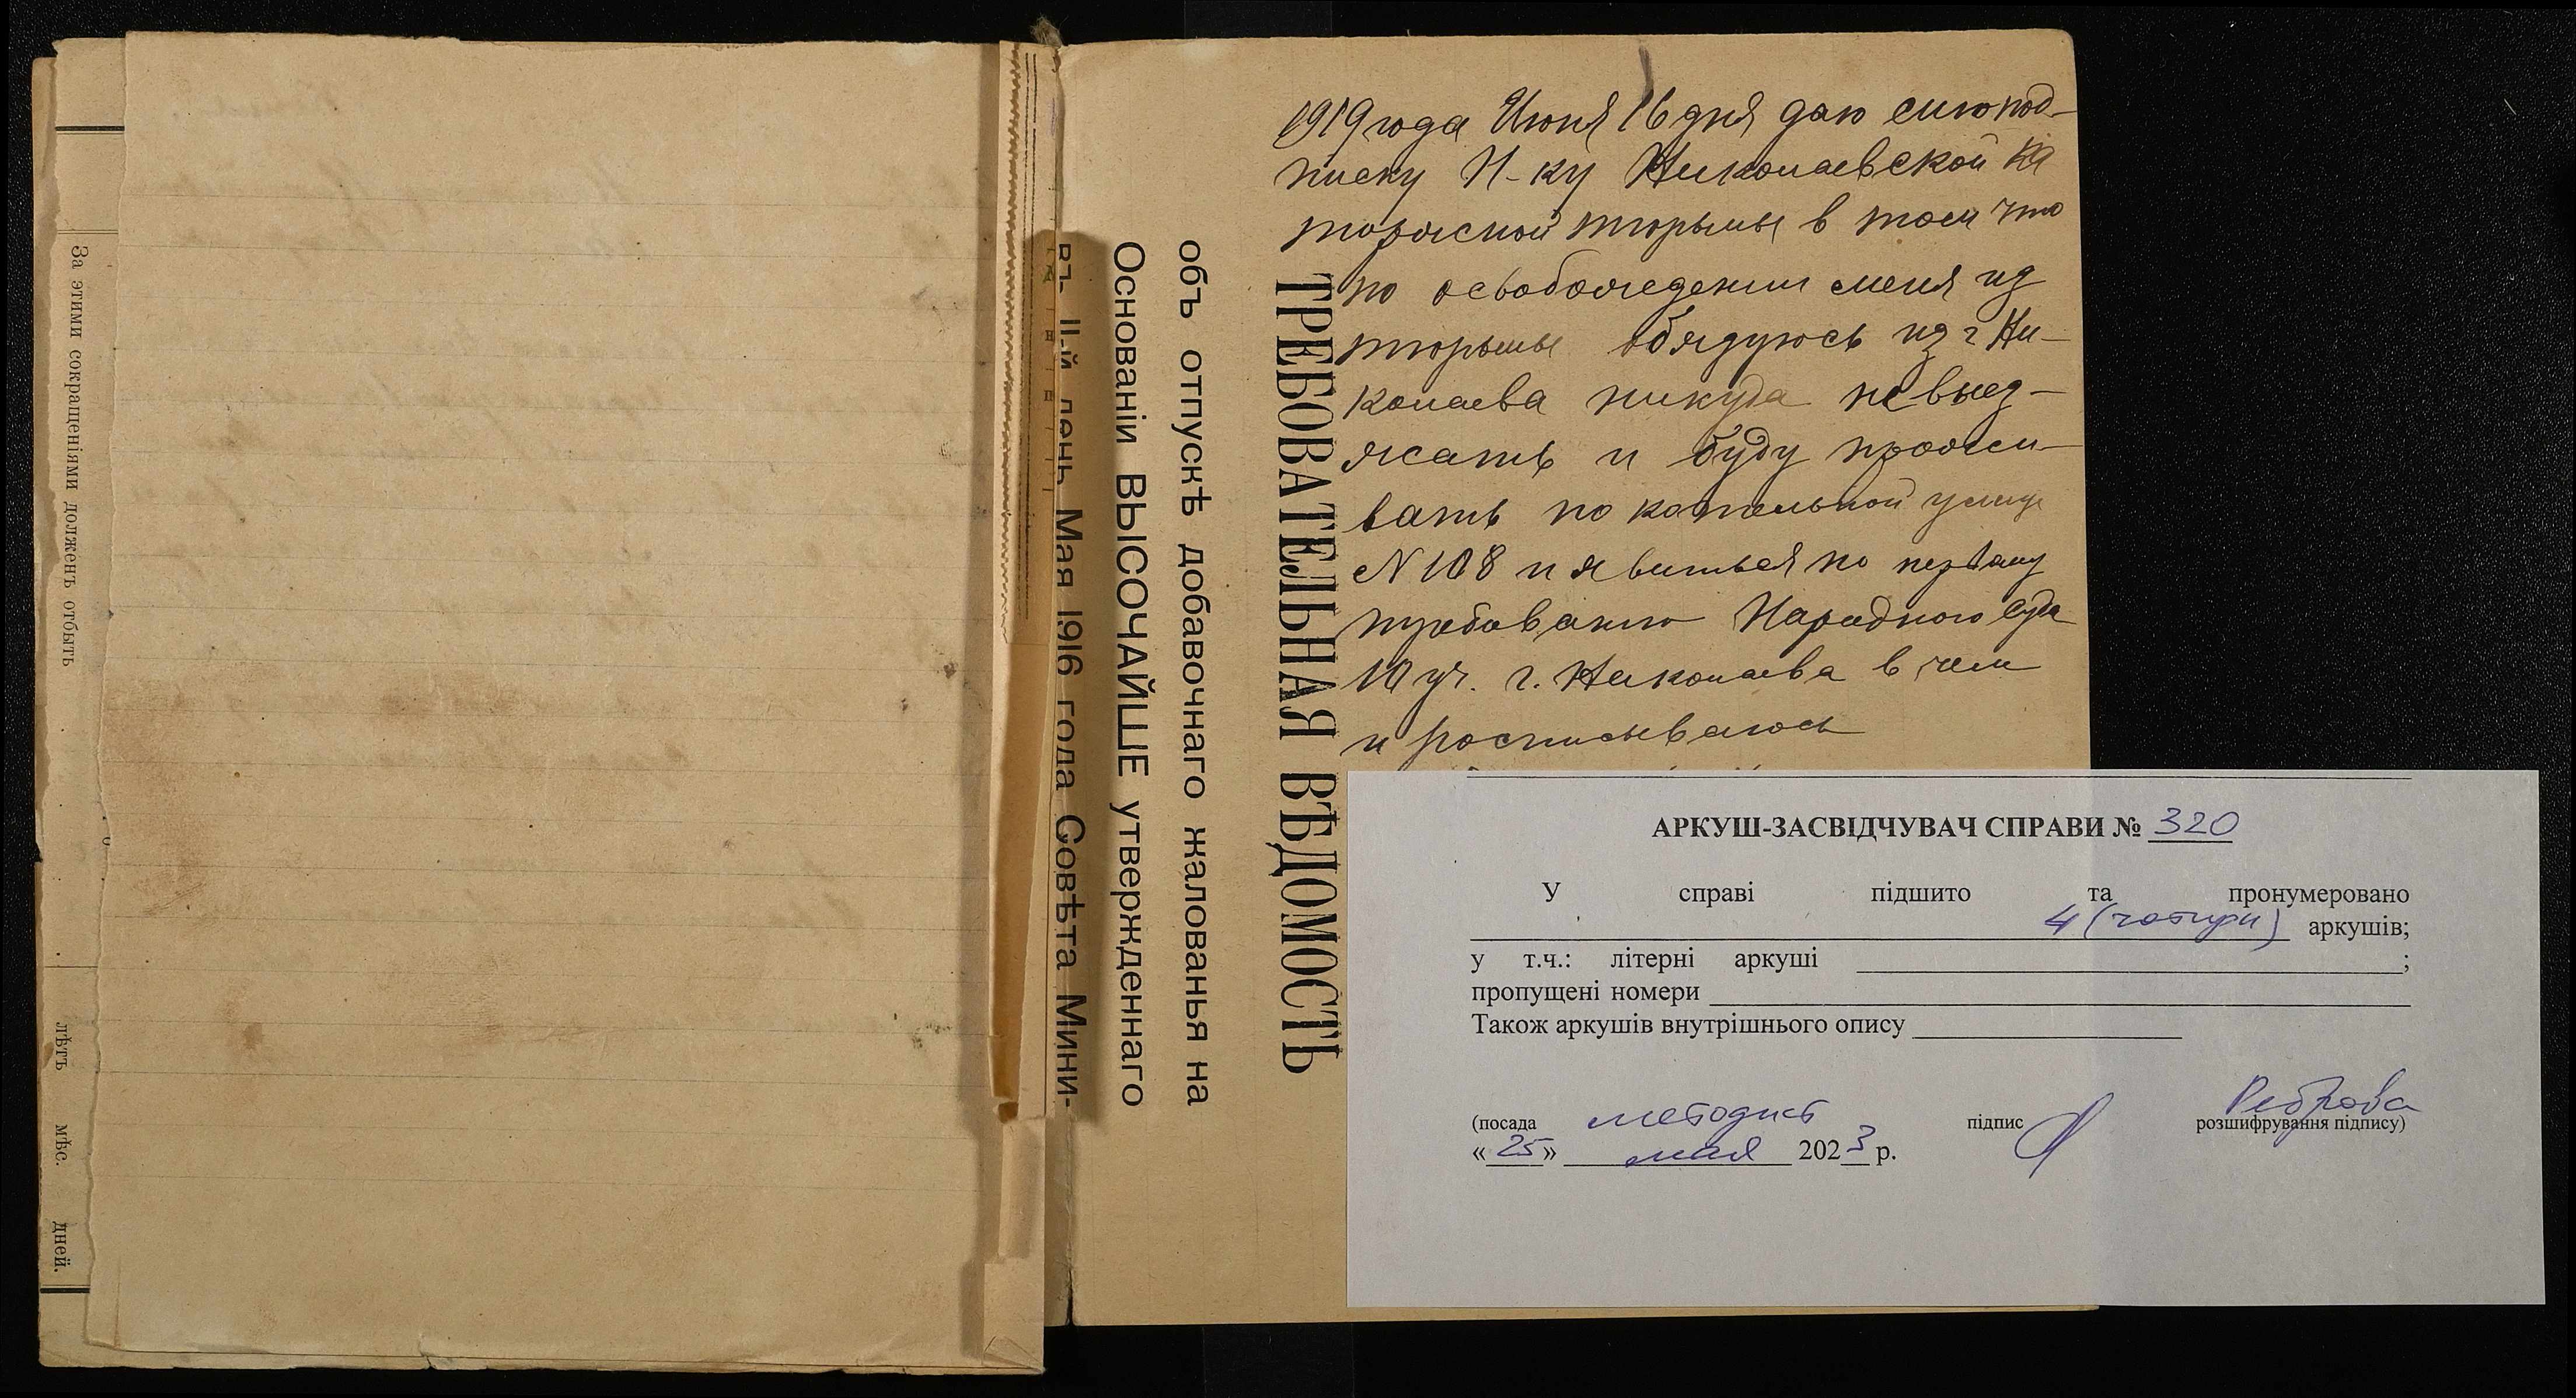 За этими сокращеніями долженъ отбыть
лѣтъ мѣс. дней.
въ II-й день Мая 1916 года Совѣта Мини-
Основаніи ВЫСОЧАЙШЕ утвержденнаго
объ отпускѣ добавочнаго жалованья на
ТРЕБОВАТЕЛЬНАЯ ВѢДОМОСТЬ
1919 года Июня 16 дня даю сию под-
писку Н-ку Николаевской ка
торжной тюрьмы в том что
по освобождении меня из
тюрьмы обязуюсь из г Ни-
колаева никуда не выез-
жать и буду прожи-
вать по котельной улице
N 108 и явиться по первому
требованию Народного Суда
10 уч. г. Николаева в чем
и росписываюсь
АРКУШ-ЗАСВІДЧУВАЧ СПРАВИ № 320
У справі підшито та пронумеровано
4 (чотири) аркушів;
у т.ч.: літерні аркуші ;
пропущені номери
Також аркушів внутрішнього опису
(посада методист підпис Реброва розшифрування підпису)
«25» мая 2023 р.